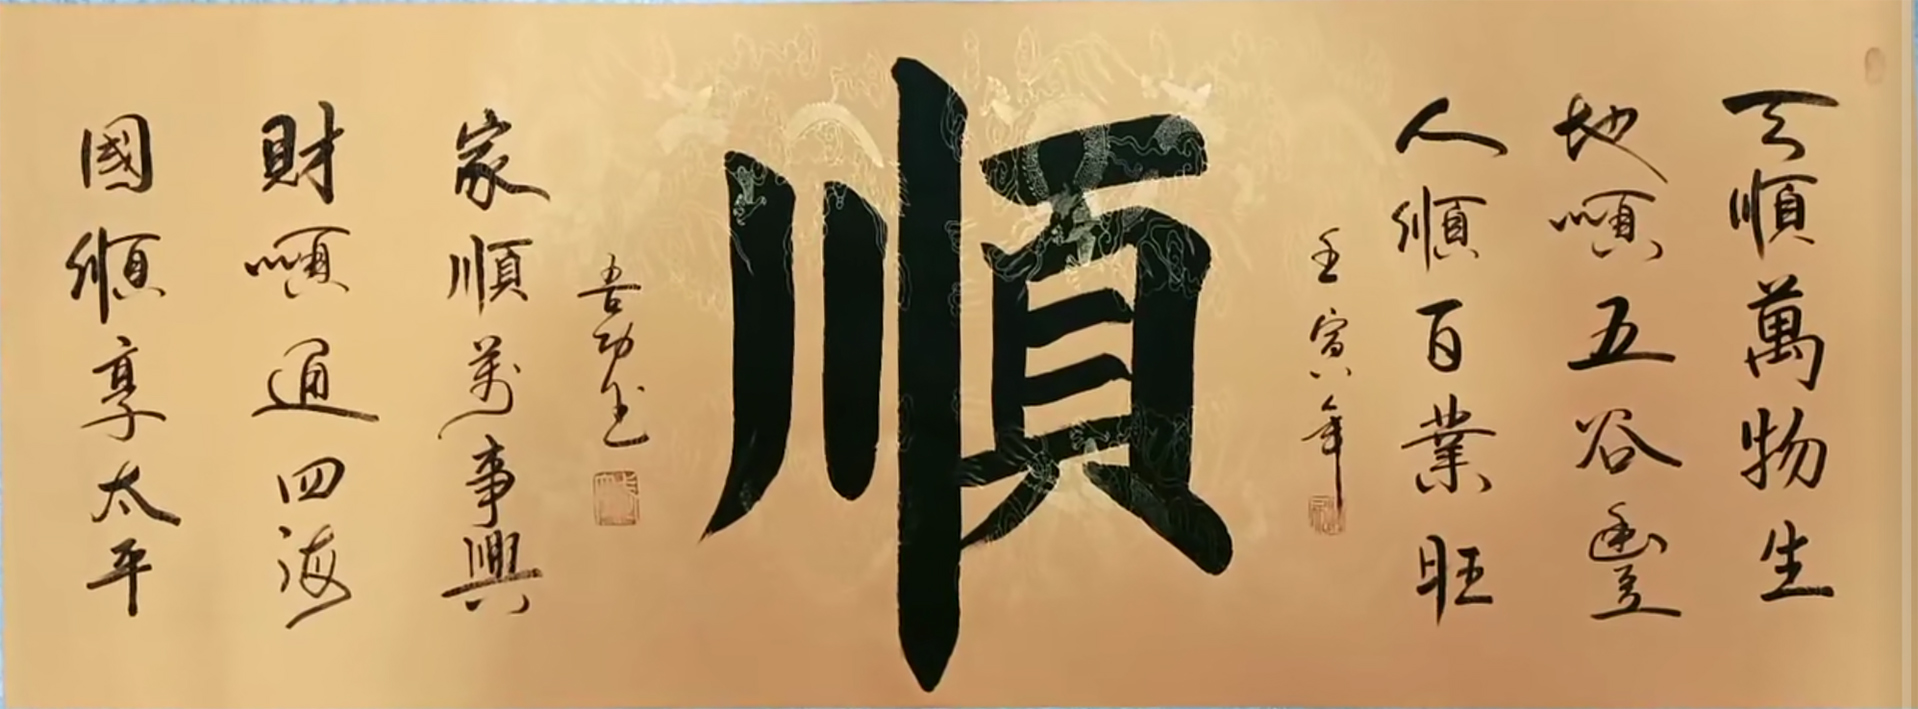 天順萬物生
地順五谷豐
人順百業旺
壬寅年
順
家順萬事興
財順通四海
國順享太平